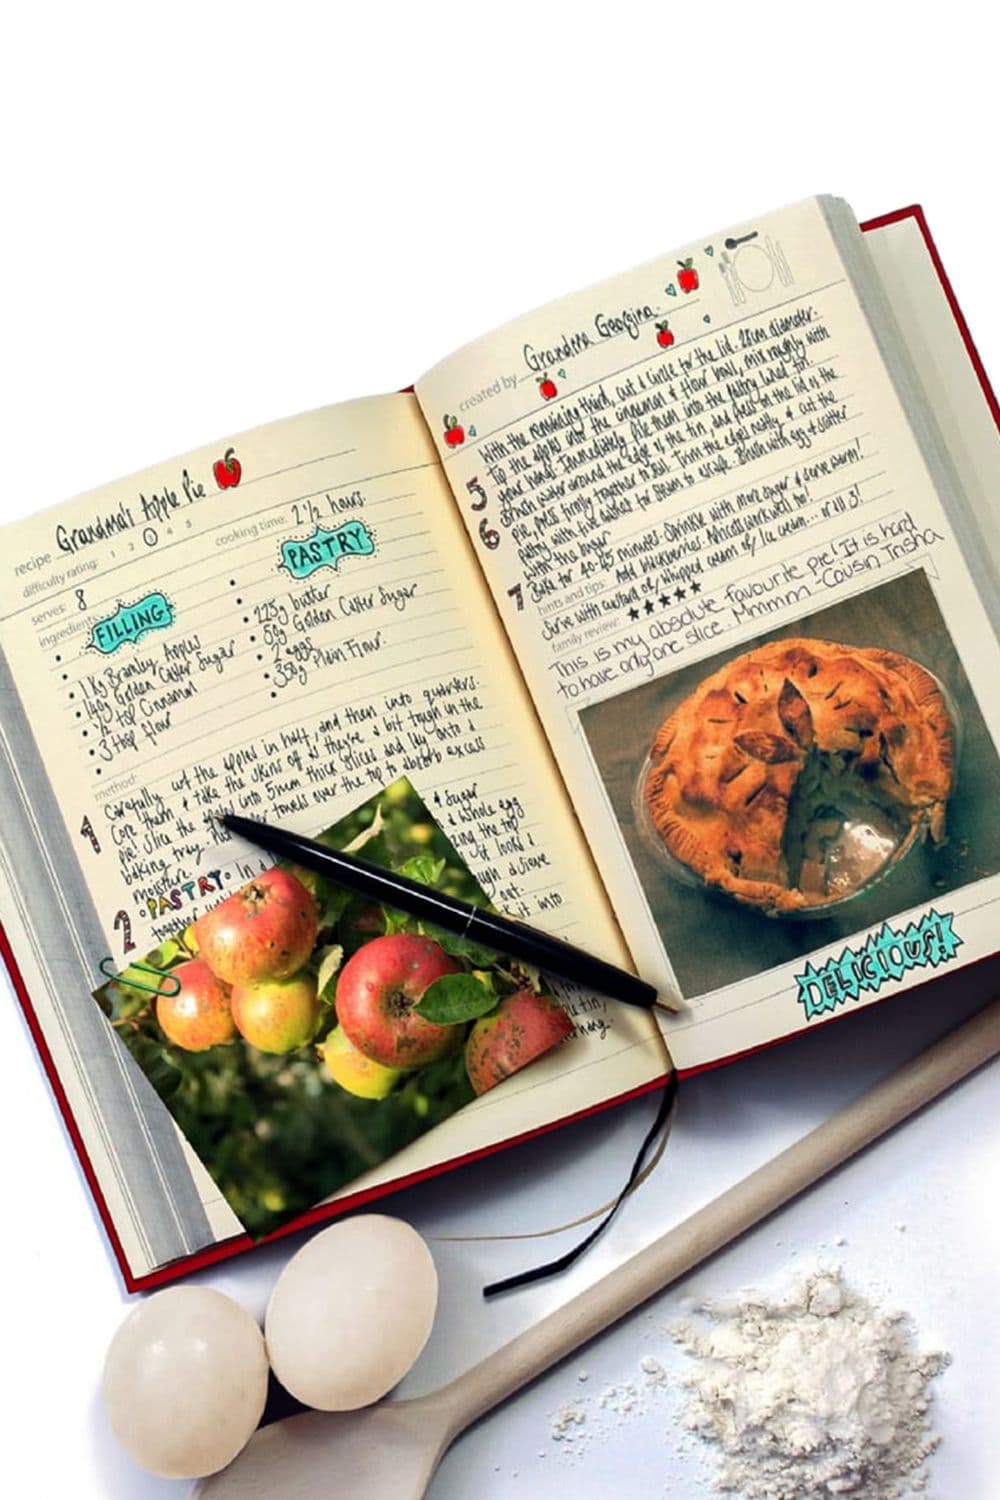 recipe Grandma's Apple Pie
difficulty rating: 1 2 3 4 5
cooking time: 2½ hours
serves: 8
ingredients:
FILLING
1 Kg Bramley Apples
140g Golden Caster Sugar
½ tsp Cinnamon
3 tbsp flour
PASTRY
225g butter
50g Golden Caster Sugar
2 eggs
350g Plain Flour
method:
1 Carefully cut the apples in half, and then into quarters.
Core them & take the skins off as they're a bit tough in the
pie! Slice the apples into 5mm thick slices and lay onto a
baking tray. towels over the top to absorb excess
moisture.
& Sugar
2 • PASTRY • In a & whole egg
together
created by Grandma Georgina
With the remaining third, cut a circle for the lid. 28cm diameter.
5 Tip the apples into the cinnamon & flour bowl, mix roughly with
your hands. Immediately pile them into the pastry lined tin.
Brush water around the edge of the tin, and press on the lid of the
6 pie, press firmly together to seal. Trim the edges neatly & cut the
pastry with five slashes for steam to escape. Brush with egg & scatter
with the sugar.
7 Bake for 40-45 minutes. Sprinkle with more sugar & serve warm!
hints and tips: Add blackberries. Apricots work well too!
Serve with custard or/ whipped cream or/ ice cream... or all 3!
family review: ★★★★★
This is my absolute favourite pie! It is hard
to have only one slice. Mmmm -Cousin Trisha
DELICIOUS!